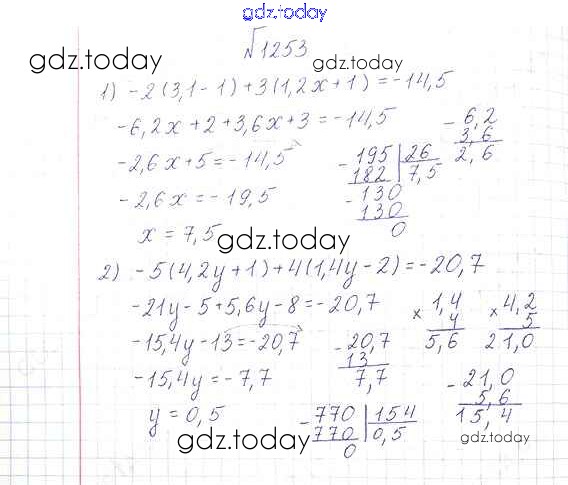 gdz.today
№1253
gdz.today gdz.today
1) -2(3,1-1)+3(1,2x+1)=-14,5
-6,2x+2+3,6x+3=-14,5
-2,6x+5=-14,5
-2,6x=-19,5
x=7,5
- 6,2
3,6
2,6
- 195 | 26
182 | 7,5
- 130
130
0
gdz.today
2) -5(4,2y+1)+4(1,4y-2)=-20,7
-21y-5+5,6y-8=-20,7
-15,4y-13=-20,7
-15,4y=-7,7
y=0,5
× 1,4
4
5,6
× 4,2
5
21,0
- 20,7
13
7,7
- 21,0
5,6
15,4
- 770 | 154
770 | 0,5
0
gdz.today
gdz.today